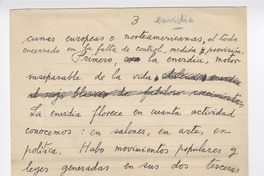 3
envidia
cunas europeas o norteamericanas, el todo
encerrado en la falta de control, medida y previsión.
Primero, la envidia, motor
inseparable de la vida
La envidia florece en cuanta actividad
conocemos: en salones, en artes, en
política. Hubo movimientos populares y
leyes generadas en sus dos terceras